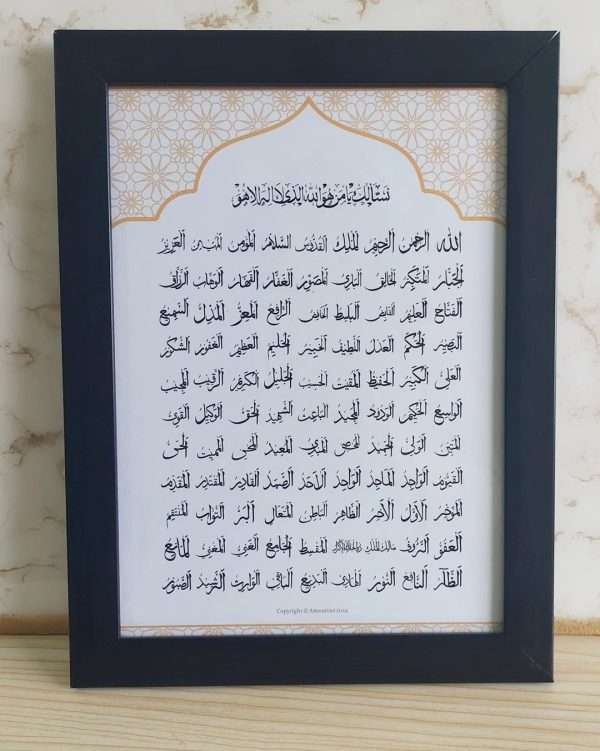 نسألك يا من هو الله الذي لا إله إلا هو
الله الرحمن الرحيم الملك القدوس السلام المؤمن المهيمن العزيز
الجبار المتكبر الخالق البارئ المصور الغفار القهار الوهاب الرزاق
الفتاح العليم القابض الباسط الخافض الرافع المعز المذل السميع
البصير الحكم العدل اللطيف الخبير الحليم العظيم الغفور الشكور
العلي الكبير الحفيظ المقيت الحسيب الجليل الكريم الرقيب المجيب
الواسع الحكيم الودود المجيد الباعث الشهيد الحق الوكيل القوي
المتين الولي الحميد المحصي المبدئ المعيد المحيي المميت الحي
القيوم الواجد الماجد الواحد الأحد الصمد القادر المقتدر المقدم
المؤخر الأول الآخر الظاهر الباطن المتعال البر التواب المنتقم
العفو الرؤوف مالك الملك ذو الجلال والإكرام المقسط الجامع الغني المغني المانع
الضار النافع النور الهادي البديع الباقي الوارث الرشيد الصبور
Copyright ©